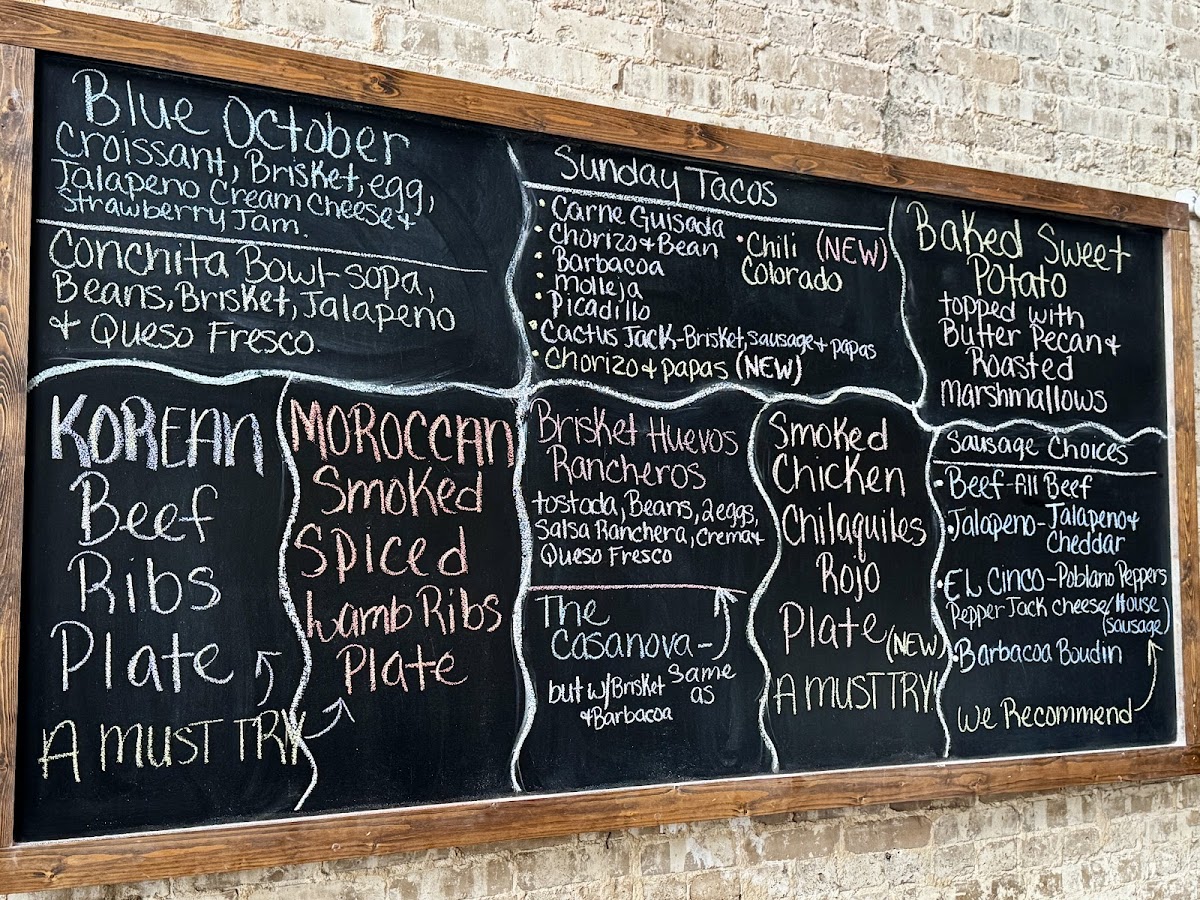 Blue October
Croissant, Brisket, egg,
Jalapeno Cream Cheese &
Strawberry Jam.
Conchita Bowl-sopa,
Beans, Brisket, Jalapeno
& Queso Fresco.
Sunday Tacos
• Carne Guisada
• Chorizo & Bean
• Barbacoa
• Molleja
• Picadillo
• Cactus Jack-Brisket, sausage & papas
• Chorizo & papas (NEW)
• Chili (NEW)
Colorado
Baked Sweet
Potato
topped with
Butter Pecan &
Roasted
Marshmallows
KOREAN
Beef
Ribs
Plate
A MUST TRY
MOROCCAN
Smoked
Spiced
Lamb Ribs
Plate
Brisket Huevos
Rancheros
tostada, Beans, 2eggs,
Salsa Ranchera, Crema &
Queso Fresco
The
Casanova-
same
as
but w/Brisket
& Barbacoa
Smoked
Chicken
Chilaquiles
Rojo
Plate (NEW)
A MUST TRY!
Sausage Choices
• Beef-All Beef
• Jalapeno-Jalapeno &
Cheddar
• EL Cinco-Poblano Peppers
Pepper Jack cheese (House
sausage)
• Barbacoa Boudin
We Recommend